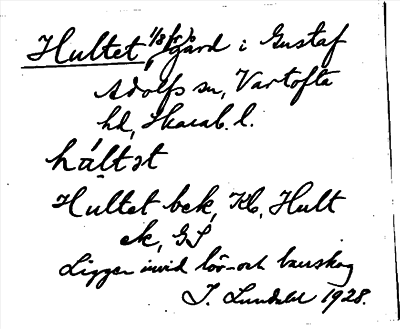 Hultet, 1/8 gård i Gustaf
Adolfs sn, Vartofta
hd, Skarab. l.
hältət
Hultet bek, Kb, Hult
ek, GS
Ligger invid löv- och barrskog
J. Lundahl 1928.